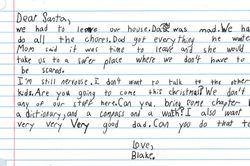 Dear Santa,
we had to leave our house. Dad was mad. We ha
do all the chores. Dad got everything he wante
Mom said it was time to leave and she would
take us to a safer place where we don't have to
be scared.
I'm still nervous. I don't want to talk to the other
kids. Are you going to come this christmas? We don't
any of our stuff here. Can you bring some chapter b
a dictionary, and a compass and a watch? I also want
very very very good dad. Can you do that to
Love,
Blake.